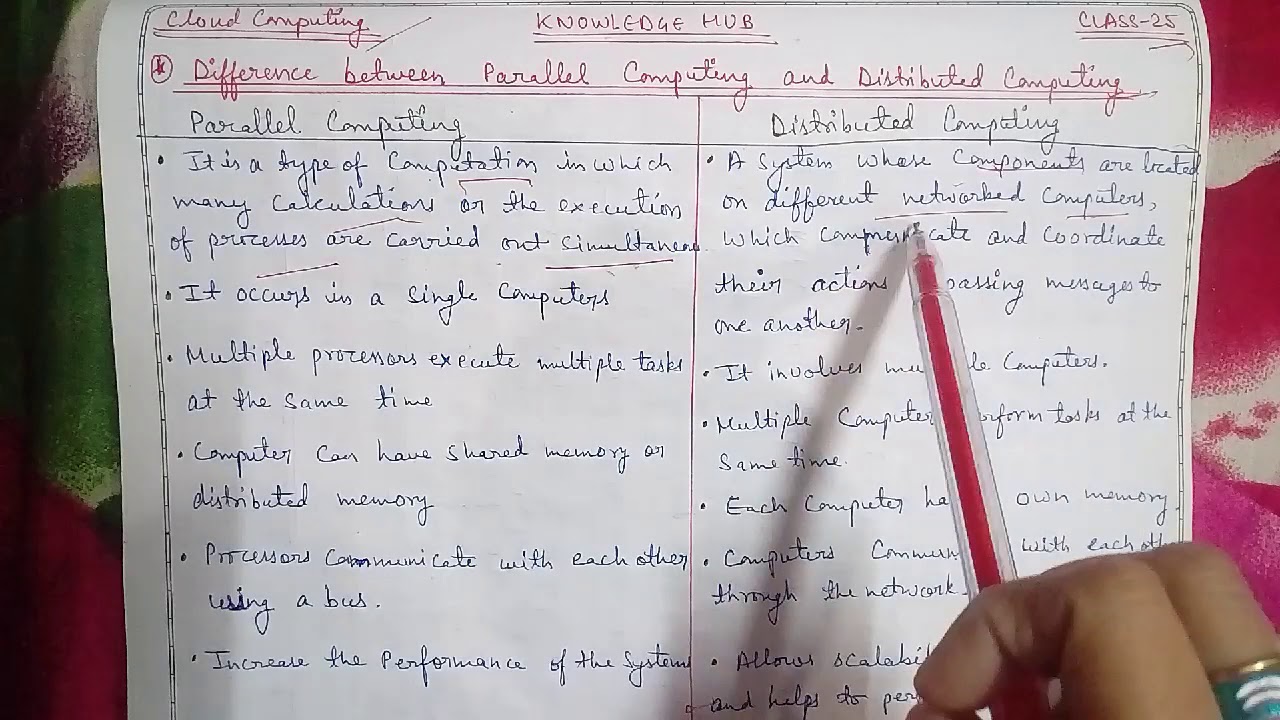 Cloud Computing KNOWLEDGE HUB CLASS-25
* Difference between Parallel Computing and Distributed Computing
Parallel Computing
• It is a type of Computation in which
many Calculations or the execution
of processes are carried out Simultaneous
• It occurs in a Single Computers
• Multiple processors execute multiple tasks
at the same time
• Computer Can have shared memory or
distributed memory
• Processors Communicate with each other
using a bus.
• Increase the Performance of the System
Distributed Computing
• A System whose Components are located
on different networked Computers,
which and Coordinate
their actions passing messages to
one another.
• It involves Computers.
• Multiple Computer tasks at the
same time.
• Each Computer own memory
• Computers with each
through the network
• Allows
and helps to